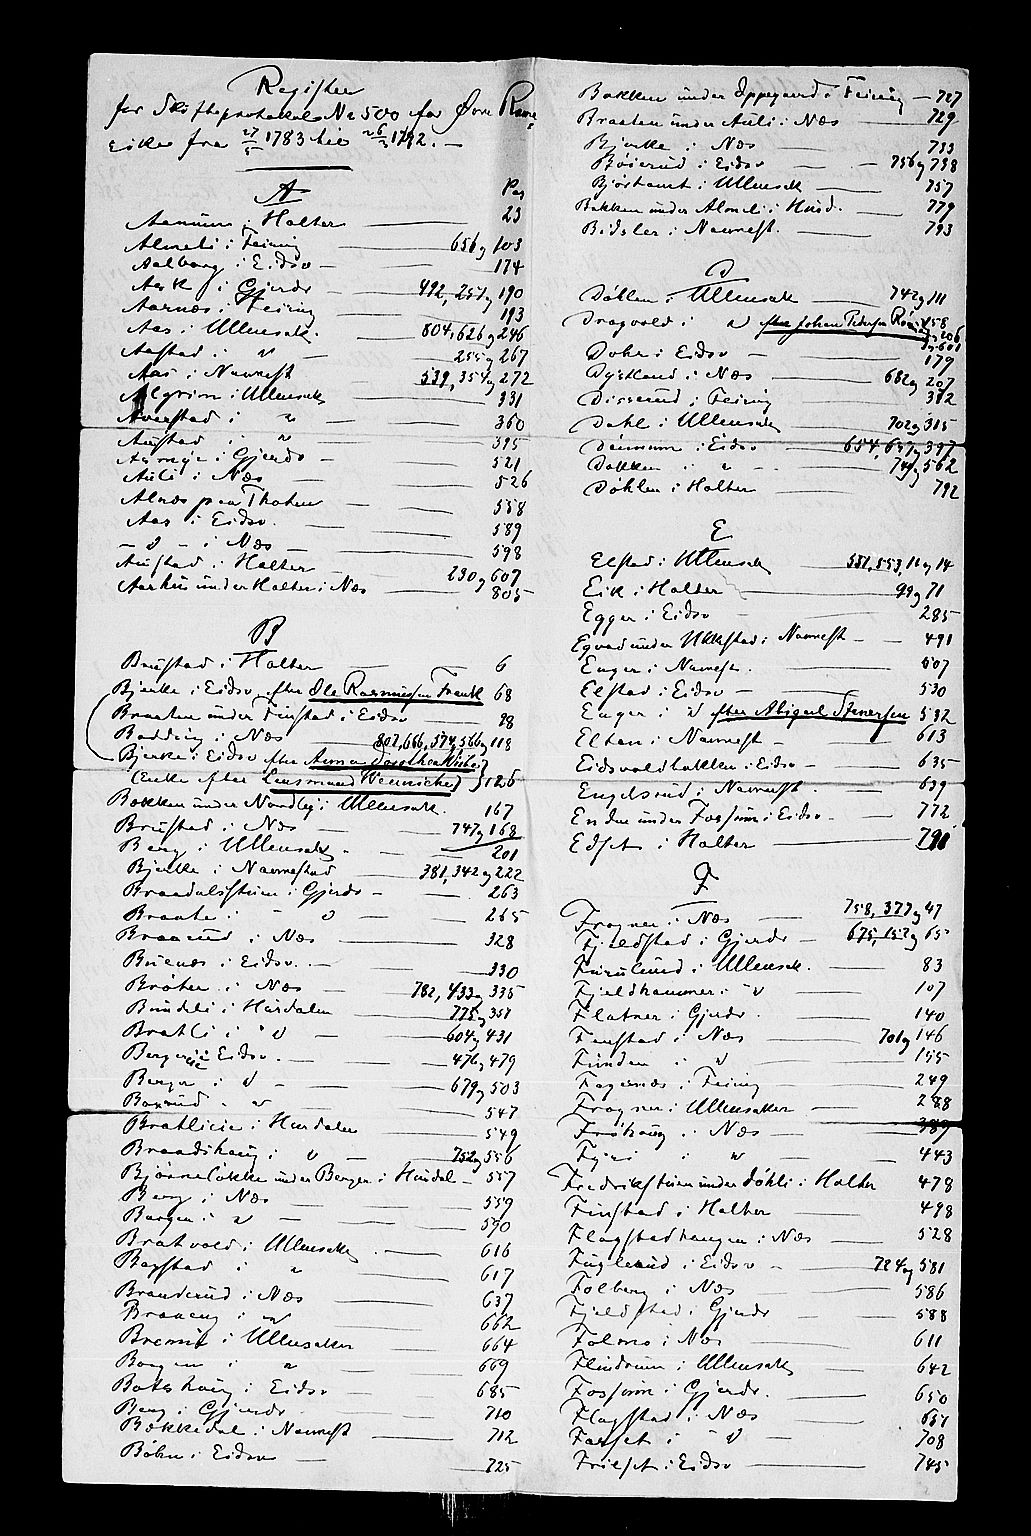 Register
for Skifteprotokol No 500 for Øvre Rome-
rike fra 27/5 1783 til 26/3 1792. —
A Pag
Aamum i Holter 23
Almeli i Feiring 656 og 103
Aalborg i Eidsv 174
Ask i Gjerdr 492, 257 og 190
Aarnæs i Feiring 193
Aas i Ullensak. 804, 626 og 246
Aastad i " 255 og 267
Aas i Nannest 539, 354 og 272
Algrim i Ullensak 331
Aurstad i " 360
Austad i " 395
i Gjerdr 521
Auli i Næs 526
Alnæs paa Thoten 558
Aas i Eidsv. 589
— " — i Næs 598
Austad i Holter 230 og 607
Aarhus under Holter i Næs 805
B
Brustad i Holter 6
Bjerke i Eidsv efter Ole Rasmussen Frank 68
Braaten under Finstad i Eidsv 88
Bodding i Næs 802, 666, 574, 566 og 118
Bjerke i Eidsv efter Anna Dorothea Wibe
(Enke efter Lensmand Wennische) } 126
Bakken under Nordby i Ullensak. 167
Brustad i Næs 747 og 168
Berg i Ullensak. 201
Bjerke i Nannestad 381, 342 og 222
Brandalsstuen i Gjerdr 263
Braate i " 265
Braarud i Næs 328
Buenæs i Eidsv. 330
Bråten i Næs 782, 433 og 335
Brudeli i Hurdalen 775 og 351
Bratli i " 604 og 431
Berger i Eidsv. 476 og 479
Berger i " 679 og 503
Boxrud " 547
Bratlien i Hurdalen 549
Brandshaug i " 752 og 556
Bjørneløkke under Bergen i Hurdal 557
Berg i Næs 559
Borgen i " 590
Bratvold i Ullensak. 616
Bogstad i " 617
Branderud i Næs 637
" 662
i Ullensaker 664
Borgen i " 669
Boteshaug i Eidsv 685
Berg i Gjerdr 710
Bækkedal i Nannest 712
Bøhn i Eidsv 725
Bakken under Oppegaard i Feiring 727
Braaten under Auli i Næs 729
Bjerke i Næs 733
Bøierud i Eidsv 756 og 738
Bjørtomt i Ullensak 757
Bakken under Almeli i Hurd. 779
Bidsler i Nannest. 793
D
Døhlen i Ullensak 742 og 111
Dragvold i " efter Johan Pedersen 158 og 206 og 601
Dohr i Eidsv 179
Dystland i Næs 682 og 207
Disserud i Feiring 312
Dahl i Ullensak 702 og 315
i Eidsv 654, 637 og 397
Dokken i " 749 og 562
Døhlen i Holter 792
E
Elstad i Ullensak 551, 553, 16 og 14
Eik i Holter 99 og 71
Egger i Eidsv 285
Egvad under Ukkestad i Nannest 491
Enger i Nannest. 507
Elstad i Eidsv 530
Enger i " efter Abigael Stenersen 532
Elton i Nannest 613
Eidsvoldbakken i Eidsv 635
Engelsrud i Nannest. 639
Enden under Fossum i Eidsv 772
Edset i Holter 791
F
Frogner i Næs 758, 377 og 47
Fjeldstad i Gjerdr 675, 152 og 65
Furulund i Ullensak. 83
Fjeldhammer i " 107
Flatner i Gjerdr. 140
Finstad i Næs 701 og 146
Funden i " 155
Fagernæs i Feiring 249
Frogner i Ullensaker 288
Frøhaug i Næs 389
Fyri i " 443
Fredrikstuen under Døhli i Holter 478
Finstad i Holter 498
Flagstadhaugen i Næs 528
Fuglerud i Eidsv 724 og 581
Folberg i Næs 586
Fjeldstad i Gjerdr 588
Folmo i Næs 611
Flindrum i Ullensak 642
Fossum i Gjerdr. 650
Flagstad i Næs 651
Farset i " 708
Frilset i Eidsv 745